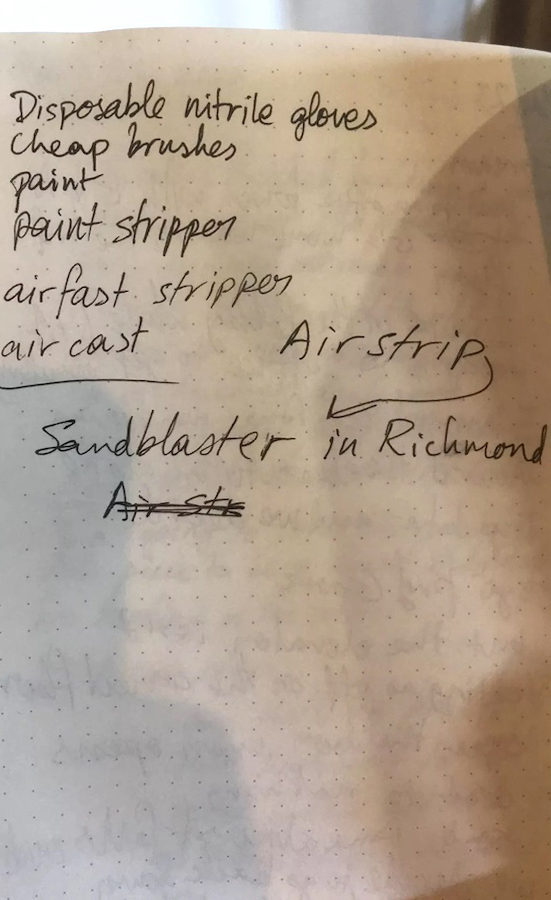 Disposable nitrile gloves
Cheap brushes
paint
paint stripper
airfast stripper
air cast
Airstrip
Sandblaster in Richmond
Air Str